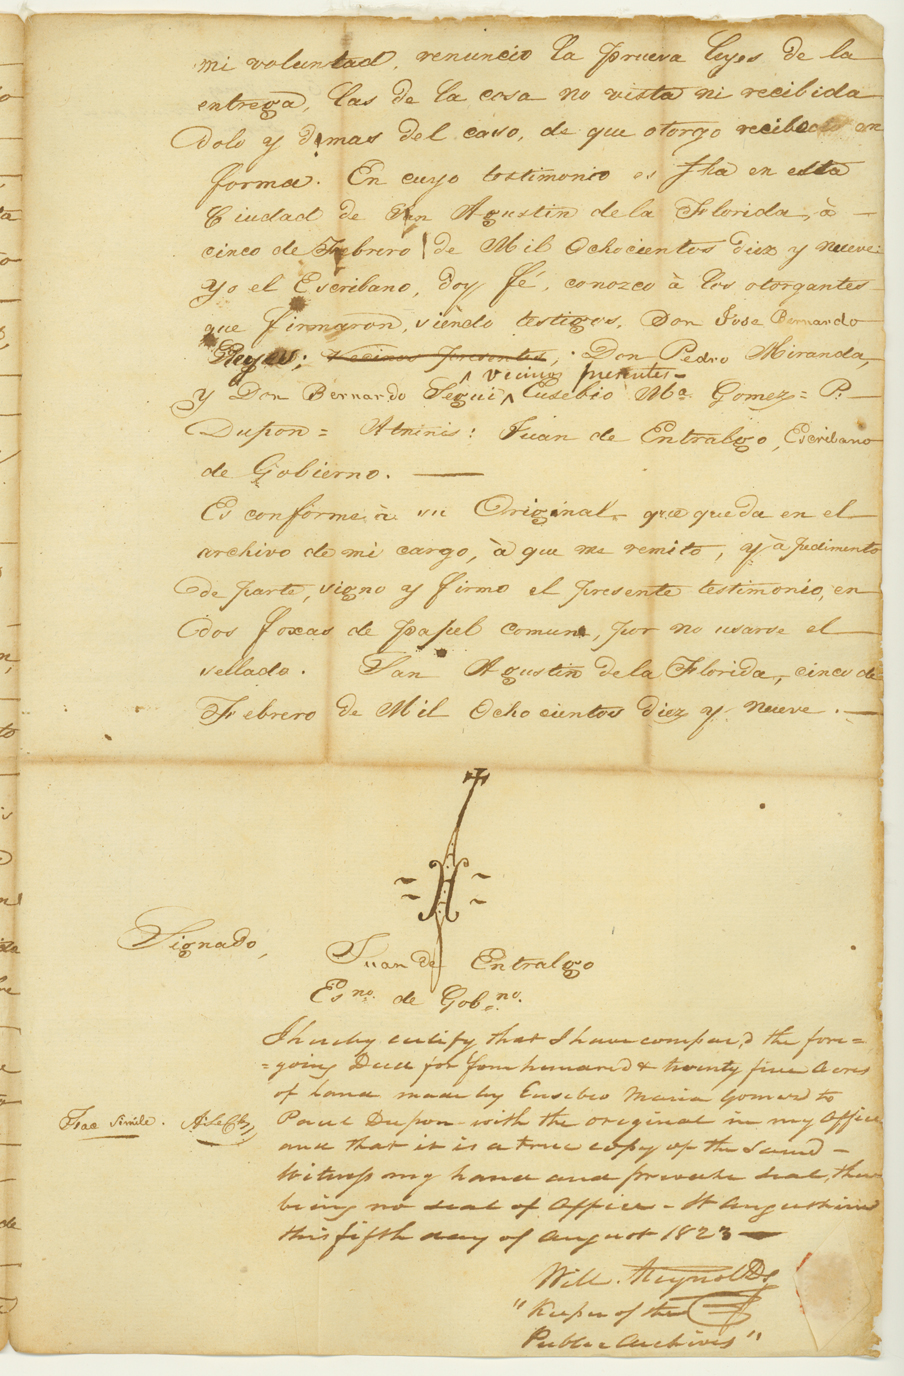 mi voluntad, renuncio la prueva leyes de la
entrega, las de la cosa no vista ni recibida
dolo y demas del caso, de que otorgo recibo en
forma. En cuyo testimonio es fha en esta
Ciudad de San Agustin de la Florida, à
cinco de Febrero de Mil Ochocientos diez y nueve:
yo el Escribano, doy fé, conozco à los otorgantes
que firmaron, siendo testigos, Don Jose Bernardo
Reyes; vecinos presentes, Don Pedro Miranda,
vecinos presentes
y Don Bernardo Segui, Eusebio Ma. Gomez = P.
Dupon = Juan de Entralgo, Escribano
de Gobierno.
Es conforme à su Original que queda en el
archivo de mi cargo, à que me remito, y à pedimento
de parte, signo y firmo el presente testimonio, en
dos foxas de papel comun, por no usarse el
sellado. San Agustin de la Florida, cinco de
Febrero de Mil Ochocientos diez y nueve.
Signado,
Juan de Entralgo
Esno. de Gobno.
I hereby certify that I have compar,d the fore=
=going Deed for four hundred & twenty five Acres
of land made by Eusebio Maria Gomez to
Fac Simile.
Paul Dupon with the original in my Office
and that it is a true copy of the same -
Witness my hand and private seal, there
being no seal of Office - St Augustine
this fifth day of August 1823
Will. Reynolds
"Keeper of the
Public Archives"